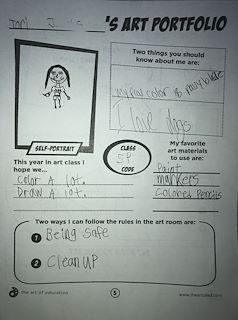 'S ART PORTFOLIO
Two things you should
know about me are:
my fav color is navy blue
I love dogs
SELF-PORTRAIT
CLASS
5P
CODE
My favorite
art materials
to use are:
Paint
markers
Colored Pencils
This year in art class I
hope we...
Color A lot.
Draw A lot.
Two ways I can follow the rules in the art room are:
1 Being Safe
2 Clean UP
the art of education
5
www.theartofed.com